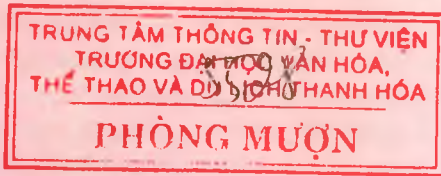 TRUNG TÂM THÔNG TIN - THƯ VIỆN
TRƯỜNG ĐẠI HỌC VĂN HÓA,
THỂ THAO VÀ DU LỊCH THANH HÓA
PHÒNG MƯỢN